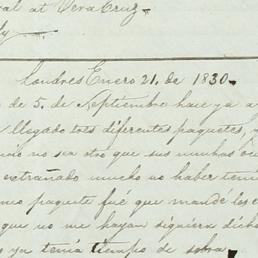 ral at Vera Cruz.
ly
Londres Enero 21. de 1830.
de 5. de Septiembre hace ya a
llegado tres diferentes paquetes,
no sea otro que sus muchas oc
extrañado mucho no haber teni
mo paquete fué que mandé los c
que no me hayan siquiera dicho
ya tenia tiempo de sobra,